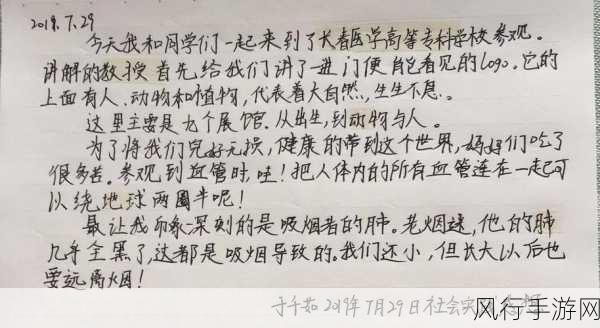 2019.7.29
今天我和同学们一起来到了长春医学高等专科学校参观。
讲解的教授首先给我们讲了一进门便能看见的logo。它的
上面有人、动物和植物,代表着大自然,生生不息。
这里主要是九个展馆。从出生,到动物与人。
为了将我们完好无损,健康的带到这个世界,妈妈们吃了
很多苦。参观到血管时,哇!把人体内的所有血管连在一起可
以绕地球两圈半呢!
最让我印象深刻的是吸烟者的肺。老烟迷,他的肺
几乎全黑了,这都是吸烟导致的。我们还小,但长大以后也
要远离烟!
于千茹 2019年7月29日社会实
风行手游网